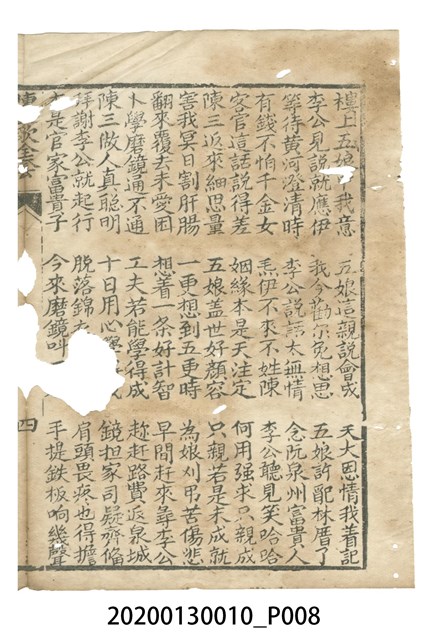 樓上五娘中我意 五娘這親說會成 天大恩情我着記
李公見說就應伊 我今勸尔免想思 五娘許配林厝了
等待黃河澄清時 李公說話太無情 念阮泉州富貴人
有錢不怕千金女 焉伊不來不姓陳 李公聽見笑哈哈
客官這話說得差 姻緣本是天注定 何用強求只親成
陳三返來細思量 五娘盖世好顏容 只親若是未成就
害我冥日割肝腸 一更想到五更時 為娘刈吊苦傷悲
翻來覆去未愛困 想着一条好計智 早間赶來尋李公
卜學磨鏡通不通 工夫若能學得成 趂赶路費返泉城
陳三做人真聰明 十日用心成 鏡担家司齊俻
拜謝李公就起行 脫落錦 肩頭畏也得擔
是官家富貴子 今來磨鏡叫 手提鉄板响幾聲
歌全 四
20200130010_P008